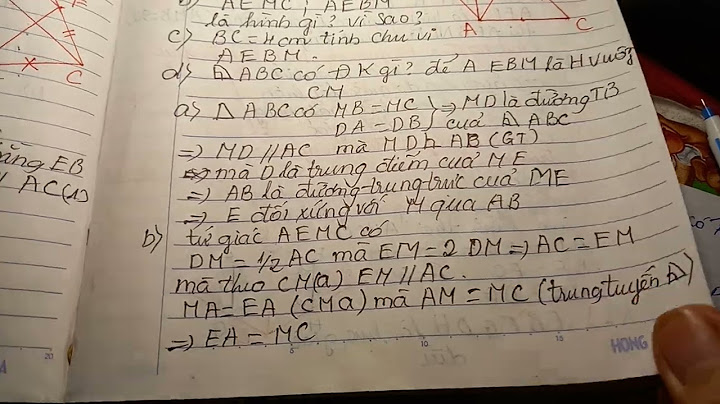 b) AEMC, AEBM
là hình gì? Vì sao?
c) BC=4cm tính chu vi
AEBM.
d) Δ ABC có ĐK gì? để AEBM là H vuông
CM
a) Δ ABC có MB=MC } => MD là đường TB
DA=DB } của Δ ABC
=> MD // AC mà MD ⊥ AB (GT)
mà D là trung điểm của ME
=> AB là đường trung trực của ME
=> E đối xứng với M qua AB
b) tứ giác AEMC có
DM = 1/2 AC mà EM=2 DM => AC=EM
mà theo CM(a) EM // AC.
MA=EA (CMa) mà AM=MC (trung tuyến Δ)
=> EA = MC
A C
C
EB
AC(1)
20
5
10
15
HONG